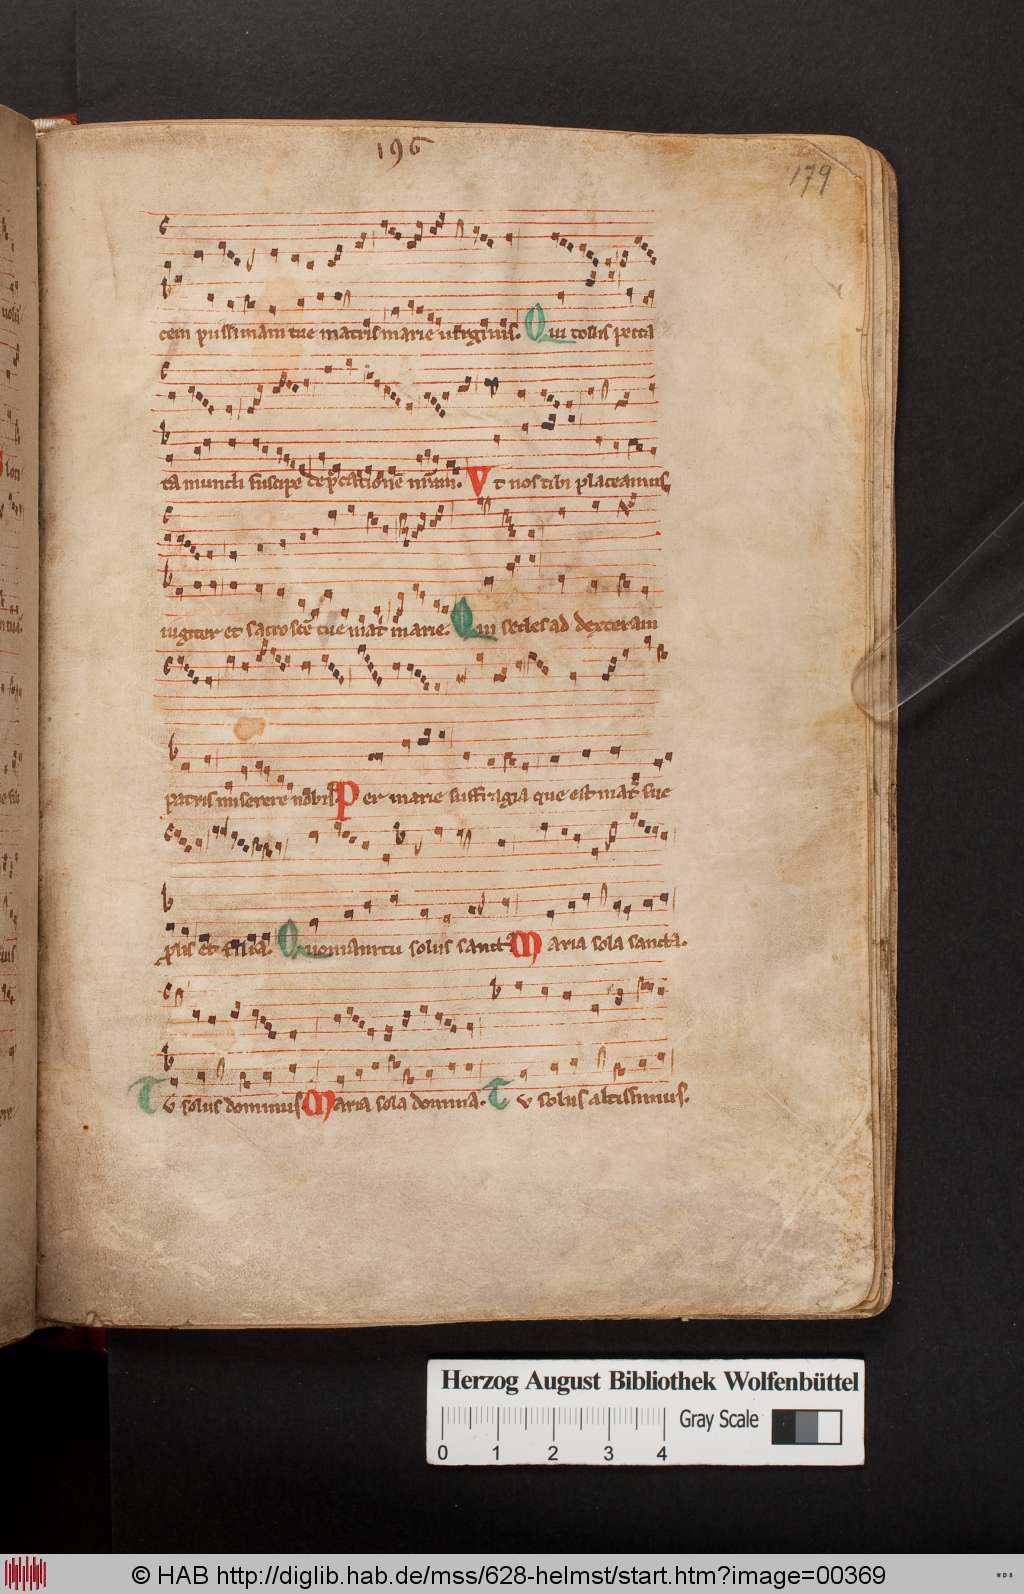 196
179
cem piissimam tue matris marie uirginis. Qui tollis pecca
ta mundi suscipe deprecationem nostram. Vt nos tibi placeamus
iugiter et sacro sce tue mat marie. Qui sedes ad dexteram
patris miserere nobis Per marie suffragia que est mat sue
prolis et filia. Quoniam tu solus sanctus Maria sola sancta.
Tu solus dominus Maria sola domina. Tu solus altissimus.
Herzog August Bibliothek Wolfenbüttel
Gray Scale
0 1 2 3 4
© HAB http://diglib.hab.de/mss/628-helmst/start.htm?image=00369